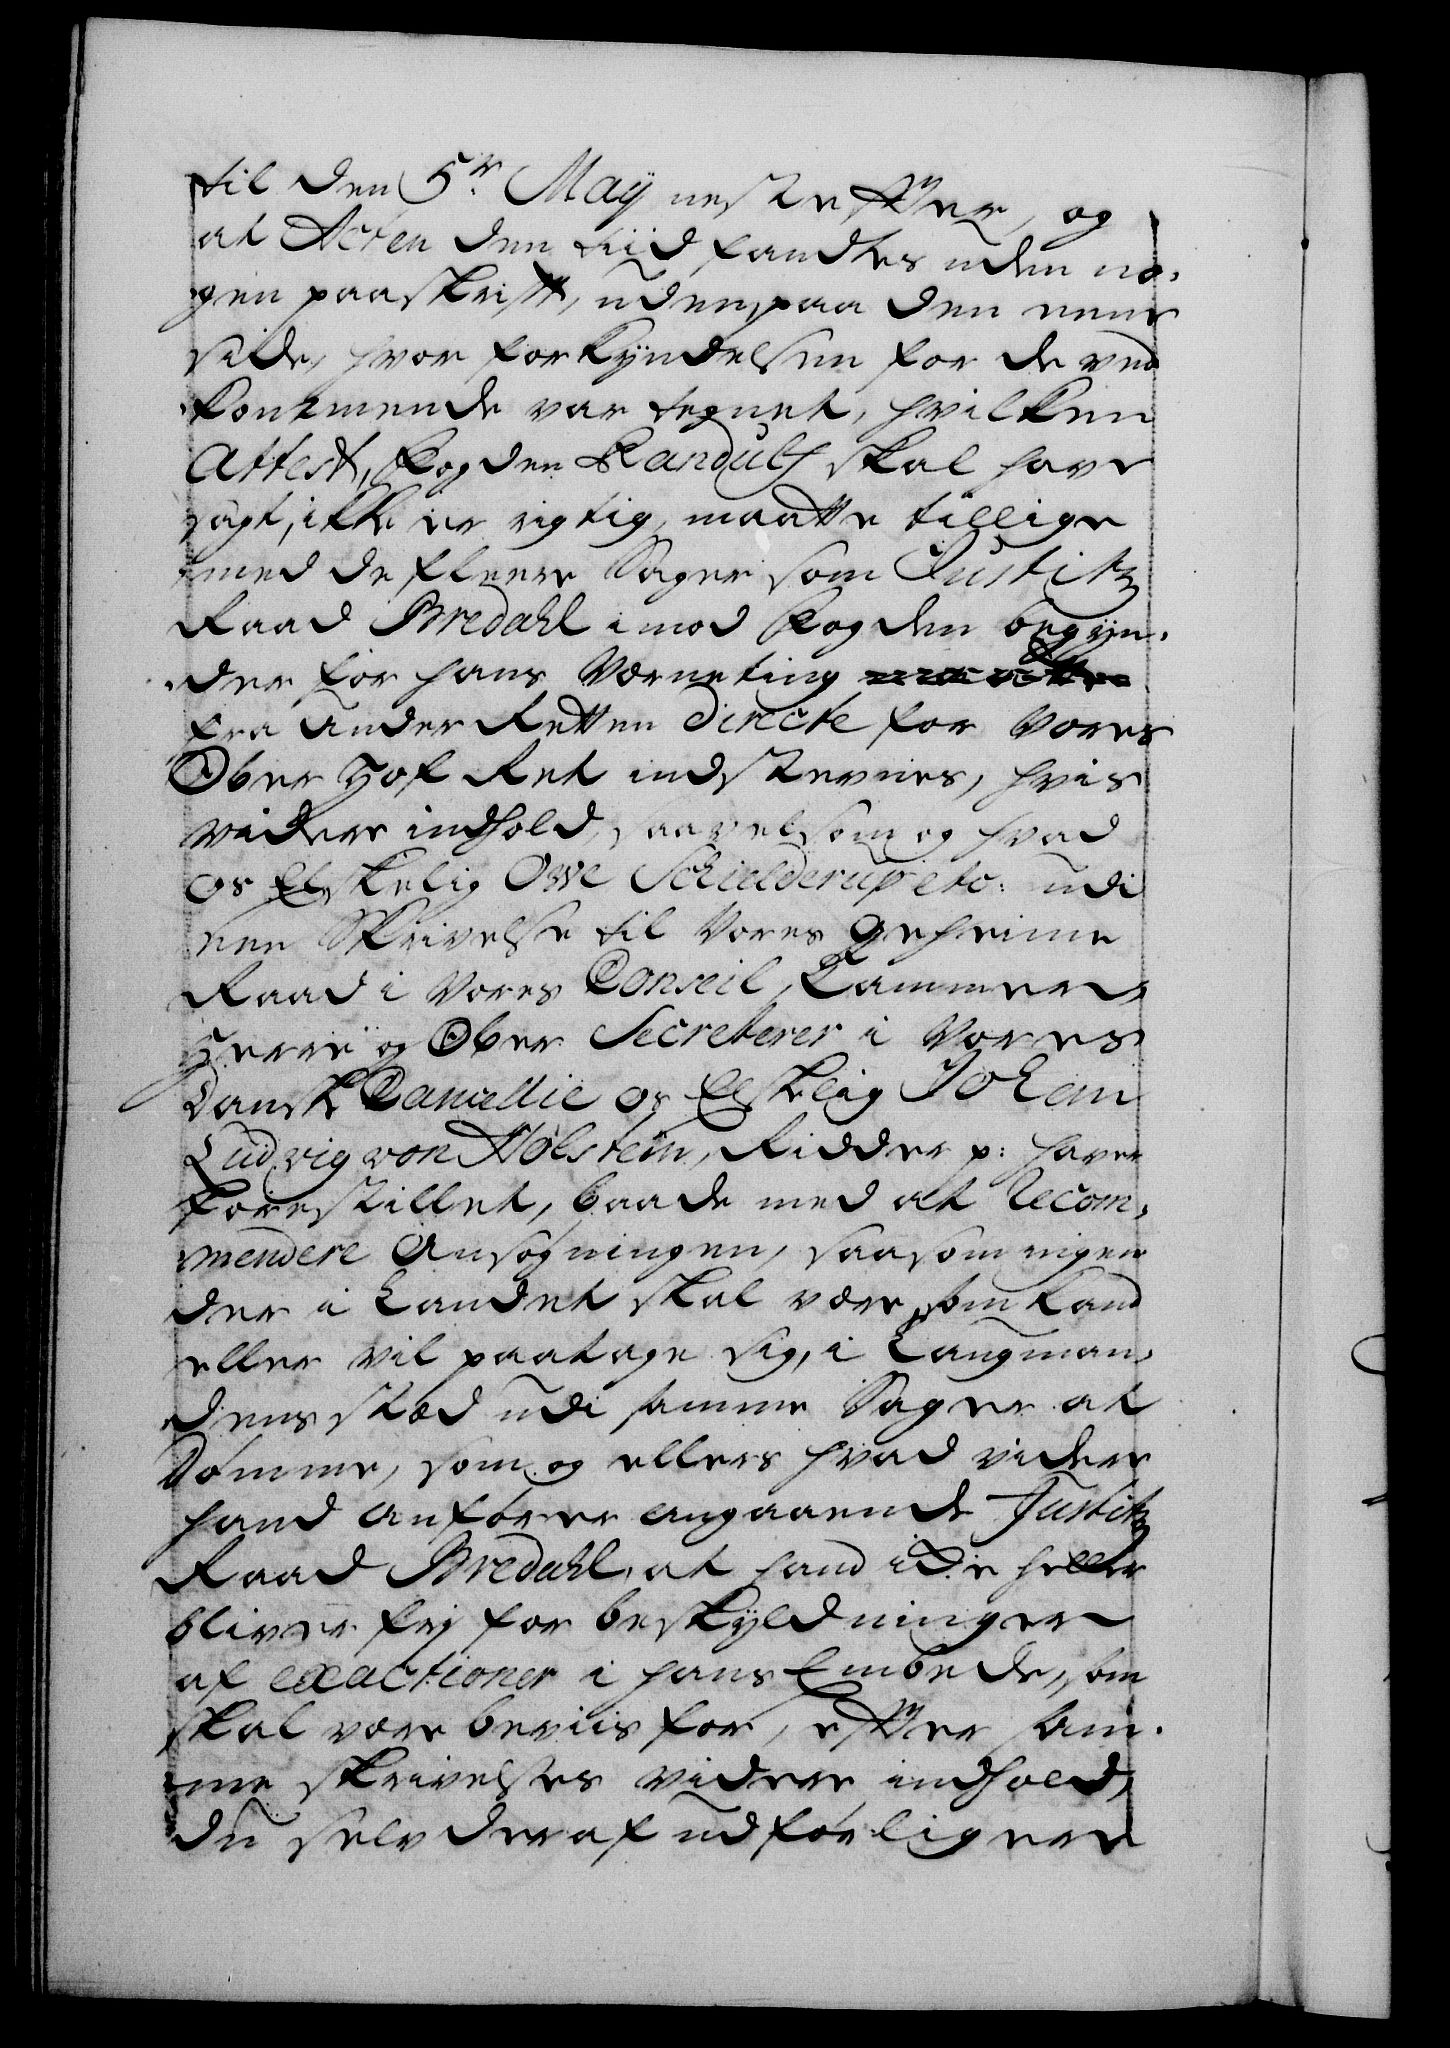 til den 5te May nest efter, og
at Acten den tiid fandtes uden no,
gen paaskrifft, udenpaa den eene
side, hvor forkyndelsen for de ved
kommende var tegnet, hvilken
Attest, Fogden Randulf skal have
sagt, ikke er rigtig, maatte tillige
med de fleere Sager som Justitz
Raad Bredahl imod Fogden begyn,
der for hans Værneting
fra Under Retten directe for Vores
Ober Hof Ret indstevnes, hvis
videre indhold, saavelsom og hvad
os Elskelig Ove Schielderup etc: udi
een Skrivelse til Vores Geheime
Raad i Vores Conseil, Cammer
Herre og Ober Secreterer i Vores
Danske Cancellie os Elskelig Johan
Ludvig von Holstein, Ridder p: haver
forestillet, baade med at Recom,
mendere Ansøgningen, saasom ingen
der i Landet skal være, som kand
eller vil paatage sig, i Laugman,
dens stæd udi samme Sager at
Dømme, som og ellers hvad videre
hand anfører angaaende Justitz
Raad Bredahl, at hand icke heller
bliver frj for beskyldninger
af exactioner i hans Embede, som
skal være beviis for, efter sam,
me skrivelses videre indhold,
du selv deraf udførligere